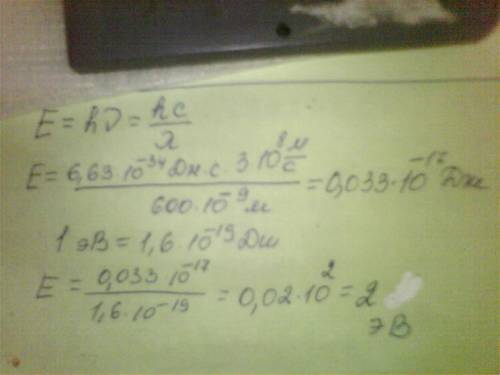 E = hν = hc/λ
E = 6,63·10⁻³⁴ Дж·с · 3·10⁸ м/с / 600·10⁻⁹ м = 0,033·10⁻¹⁷ Дж
1 эВ = 1,6·10⁻¹⁹ Дж
E = 0,033·10⁻¹⁷ / 1,6·10⁻¹⁹ = 0,02·10² = 2 эВ